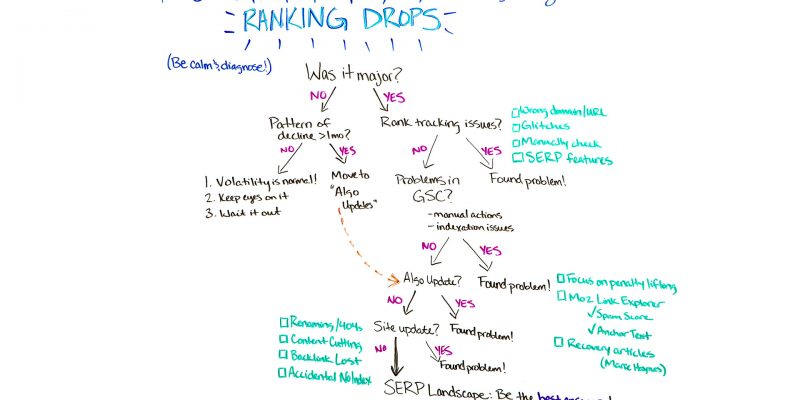 RANKING DROPS
(Be calm & diagnose!)
Was it major?
NO
YES
Pattern of
decline >1mo?
Rank tracking issues?
Wrong domain/URL
Glitches
Manually check
SERP features
NO
YES
NO
YES
1. Volatility is normal!
2. Keep eyes on it
3. Wait it out
Move to
"Algo
Updates"
Problems in
GSC?
- manual actions
- indexation issues
Found problem!
NO
YES
Algo Update?
Found problem!
Focus on penalty lifting
Moz Link Explorer
✓ Spam Score
✓ Anchor Text
Recovery articles
(Marie Haynes)
NO
YES
Renaming/404s
Content Cutting
Backlink Lost
Accidental NoIndex
Site update?
Found problem!
NO
YES
Found problem!
SERP Landscape: Be the